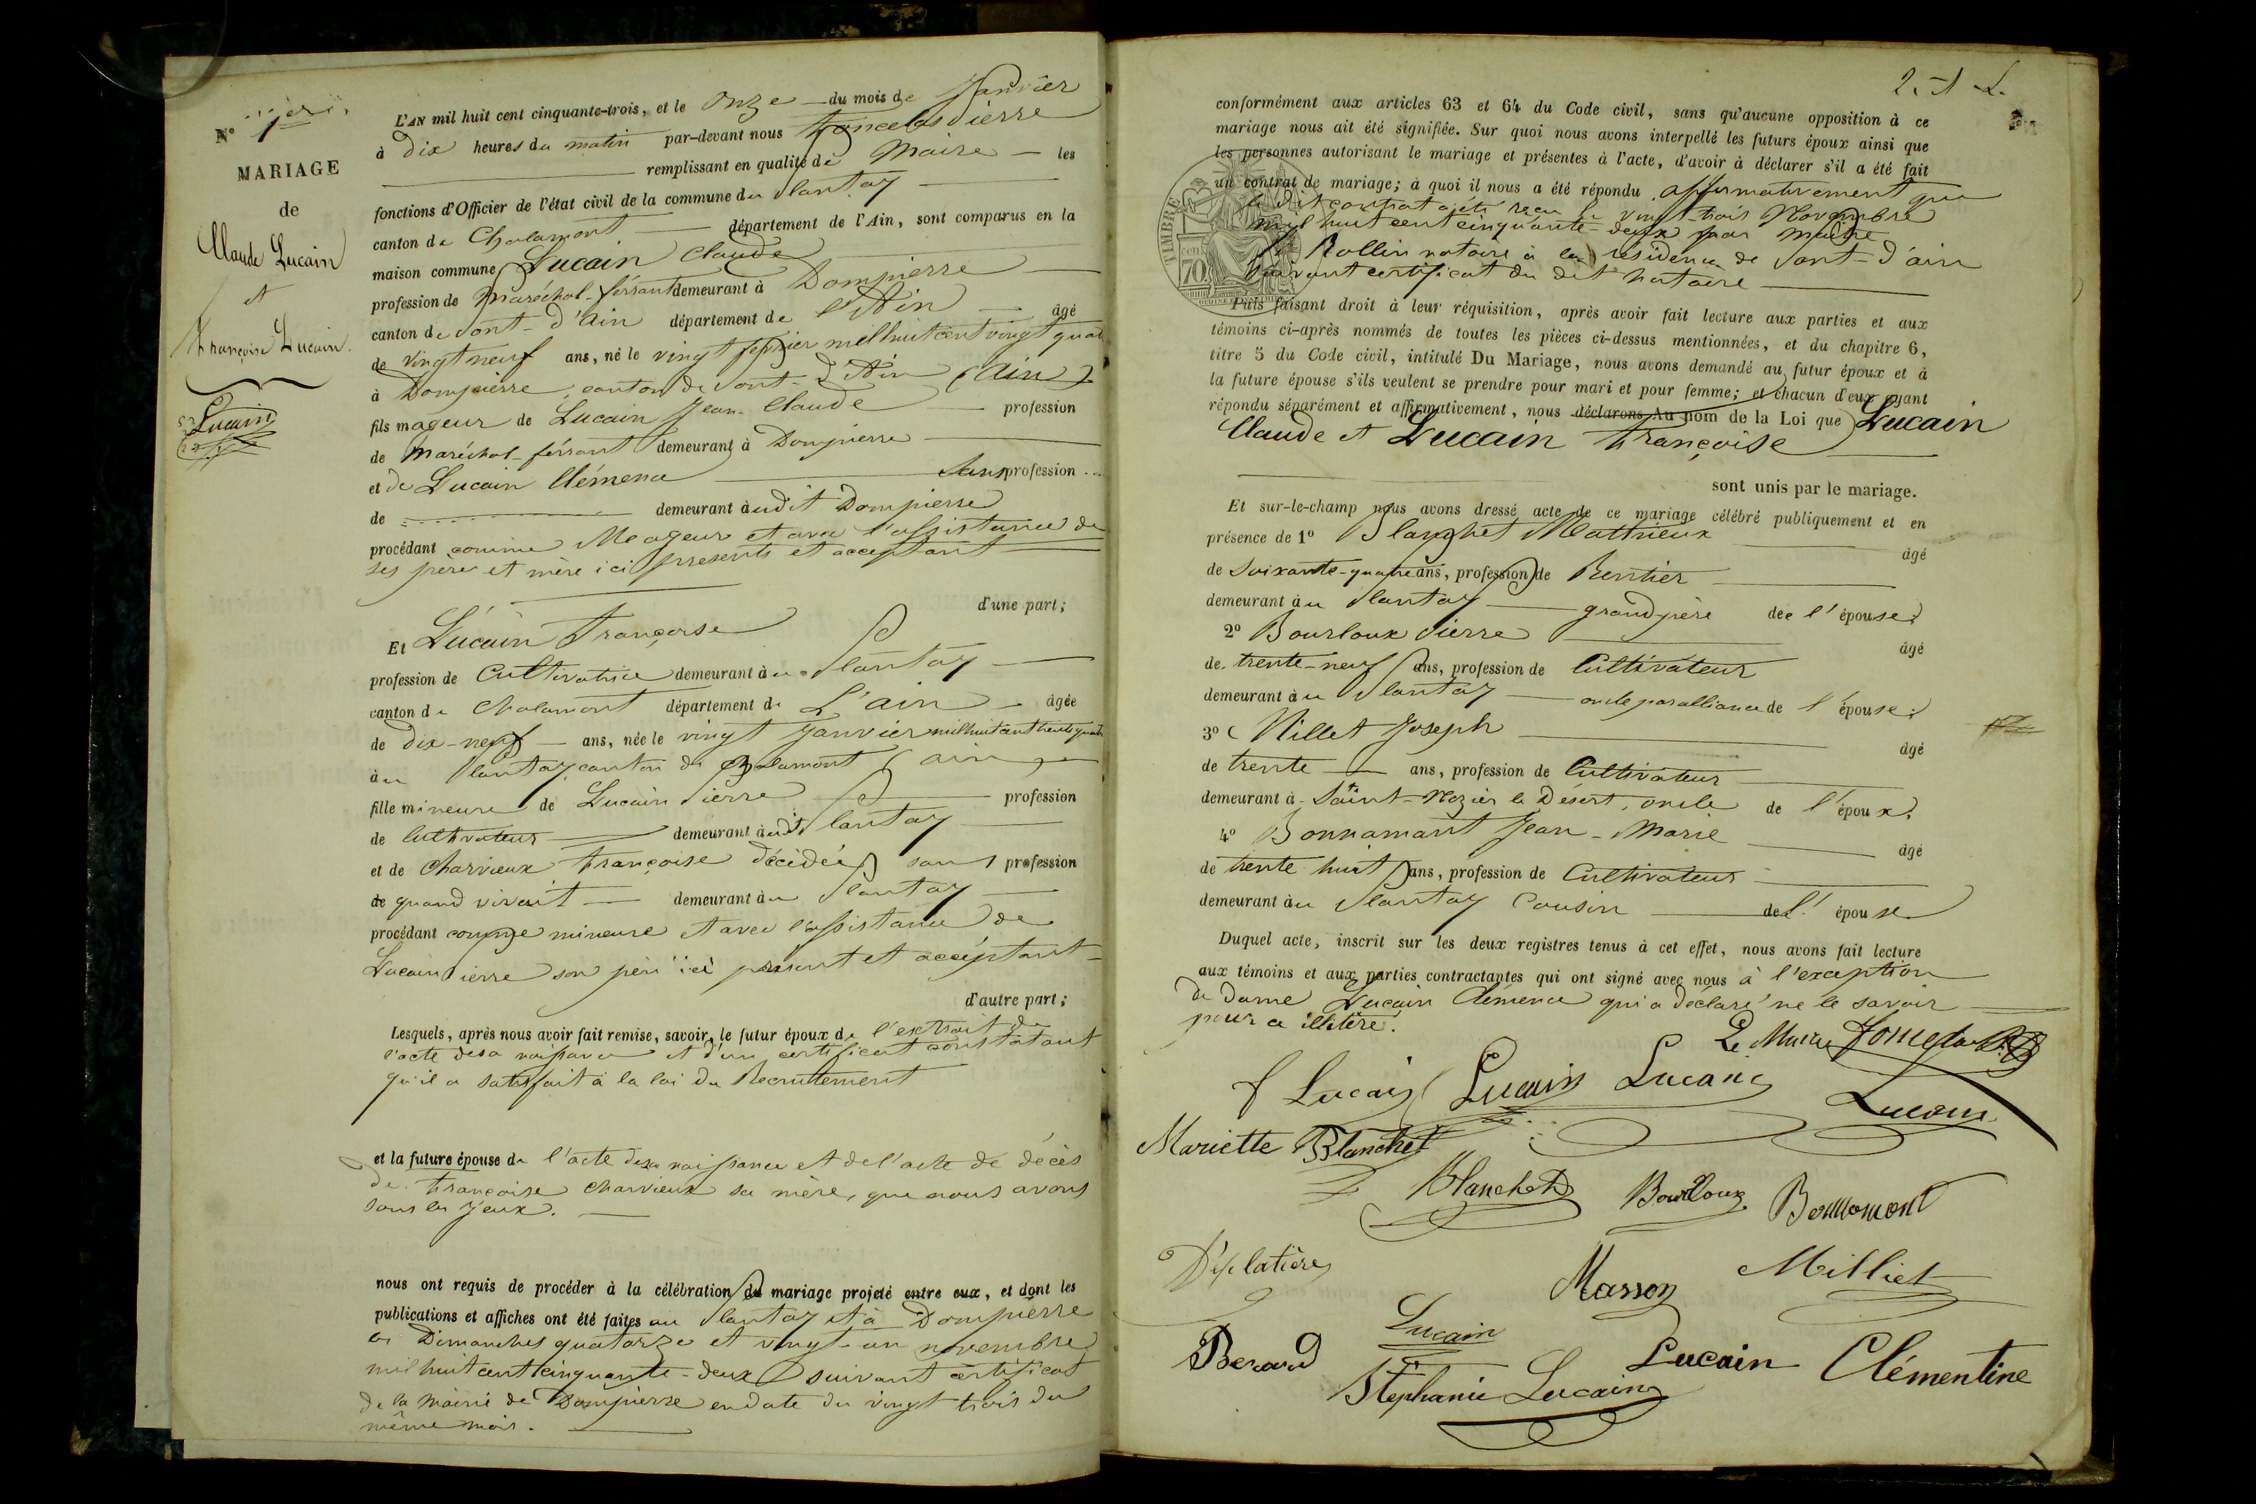 N° 1er
MARIAGE
de
Claude Lucain
et
Françoise Lucain.
Lucain
L'AN mil huit cent cinquante-trois, et le Onze du mois de Janvier
à Dix heures du matin par-devant nous Pierre
remplissant en qualité de Maire les
fonctions d'Officier de l'état civil de la commune du Plantay
canton de Chalamont département de l'Ain, sont comparus en la
maison commune Lucain Claude
profession de Maréchal-ferrant demeurant à Dompierre
canton de Pont-d'Ain département de l'Ain âgé
de vingt neuf ans, né le vingt février mil huit cent vingt quat
à Dompierre, canton de Pont-d'Ain (Ain)
fils mageur de Lucain Jean-Claude profession
de Maréchal-férrant demeurant à Dompierre
et de Lucain Clémence Sans profession
de demeurant audit Dompierre
procédant comme Mageur et avec l'assistance de
ses père et mère ici présents et acceptant
d'une part;
Et Lucain Françoise
profession de Cultivatrice demeurant au Plantay
canton de Chalamont département de L'ain âgée
de dix-neuf ans, née le vingt Janvier mil huit cent trente quatre
au Plantay, canton de Chalamont (ain)
fille mineure de Lucain Pierre profession
de Cultivateur demeurant audit Plantay
et de Charvieux Françoise décédée sans profession
de quand vivait demeurant au Plantay
procédant comme mineure et avec l'assistance de
Lucain Pierre son père ici présent et acceptant
d'autre part;
Lesquels, après nous avoir fait remise, savoir, le futur époux de l'extrait de
l'acte de sa naissance et d'un certificat constatant
qu'il a satisfait à la loi du Recrutement
et la future épouse de l'acte de sa naissance et de l'acte de décès
de Françoise Charvieux sa mère, que nous avons
sous les yeux.
nous ont requis de procéder à la célébration du mariage projeté entre eux, et dont les
publications et affiches ont été faites au Plantay et à Dompierre
les Dimanches quatorze et vingt-un novembre
mil huit cent cinquante-deux suivant certificat
de la mairie de Dompierre en date du vingt trois du
même mois.
conformément aux articles 63 et 64 du Code civil, sans qu'aucune opposition à ce
mariage nous ait été signifiée. Sur quoi nous avons interpellé les futurs époux ainsi que
les personnes autorisant le mariage et présentes à l'acte, d'avoir à déclarer s'il a été fait
un contrat de mariage; à quoi il nous a été répondu affirmativement que
le dit contrat a été reçu le vingt-trois Novembre
mil huit cent cinquante-deux par maître
Rollin notaire à la résidence de Pont-d'ain
suivant certificat du dit notaire
TIMBRE
70
Puis faisant droit à leur réquisition, après avoir fait lecture aux parties et aux
témoins ci-après nommés de toutes les pièces ci-dessus mentionnées, et du chapitre 6,
titre 5 du Code civil, intitulé Du Mariage, nous avons demandé au futur époux et à
la future épouse s'ils veulent se prendre pour mari et pour femme; et chacun d'eux ayant
répondu séparément et affirmativement, nous déclarons Au nom de la Loi que Lucain
Claude et Lucain Françoise
sont unis par le mariage.
Et sur-le-champ nous avons dressé acte de ce mariage célébré publiquement et en
présence de 1° Blanchet Matthieux âgé
de Soixante-quatre ans, profession de Rentier
demeurant au Plantay grand père de l'épouse;
2° Bourloux Pierre âgé
de trente-neuf ans, profession de Cultivateur
demeurant au Plantay oncle par alliance de l'épouse;
3° Millet Joseph âgé
de trente ans, profession de Cultivateur
demeurant à Saint-Nizier le Désert, oncle de l'époux.
4° Bonnamant Jean-Marie âgé
de trente huit ans, profession de Cultivateur
demeurant au Plantay Cousin de l'épouse
Duquel acte, inscrit sur les deux registres tenus à cet effet, nous avons fait lecture
aux témoins et aux parties contractantes qui ont signé avec nous à l'exception
de dame Lucain Clémence qui a déclaré ne le savoir
pour ce illitéré.
Le Maire
f Lucain Lucain Lucain
Lucain
Mariette Blanchet
Blanchet Bourloux Bonnamont
Déplatière
Masson Milliet
Lucain
Berard Lucain Clémentine
Stéphanie Lucain